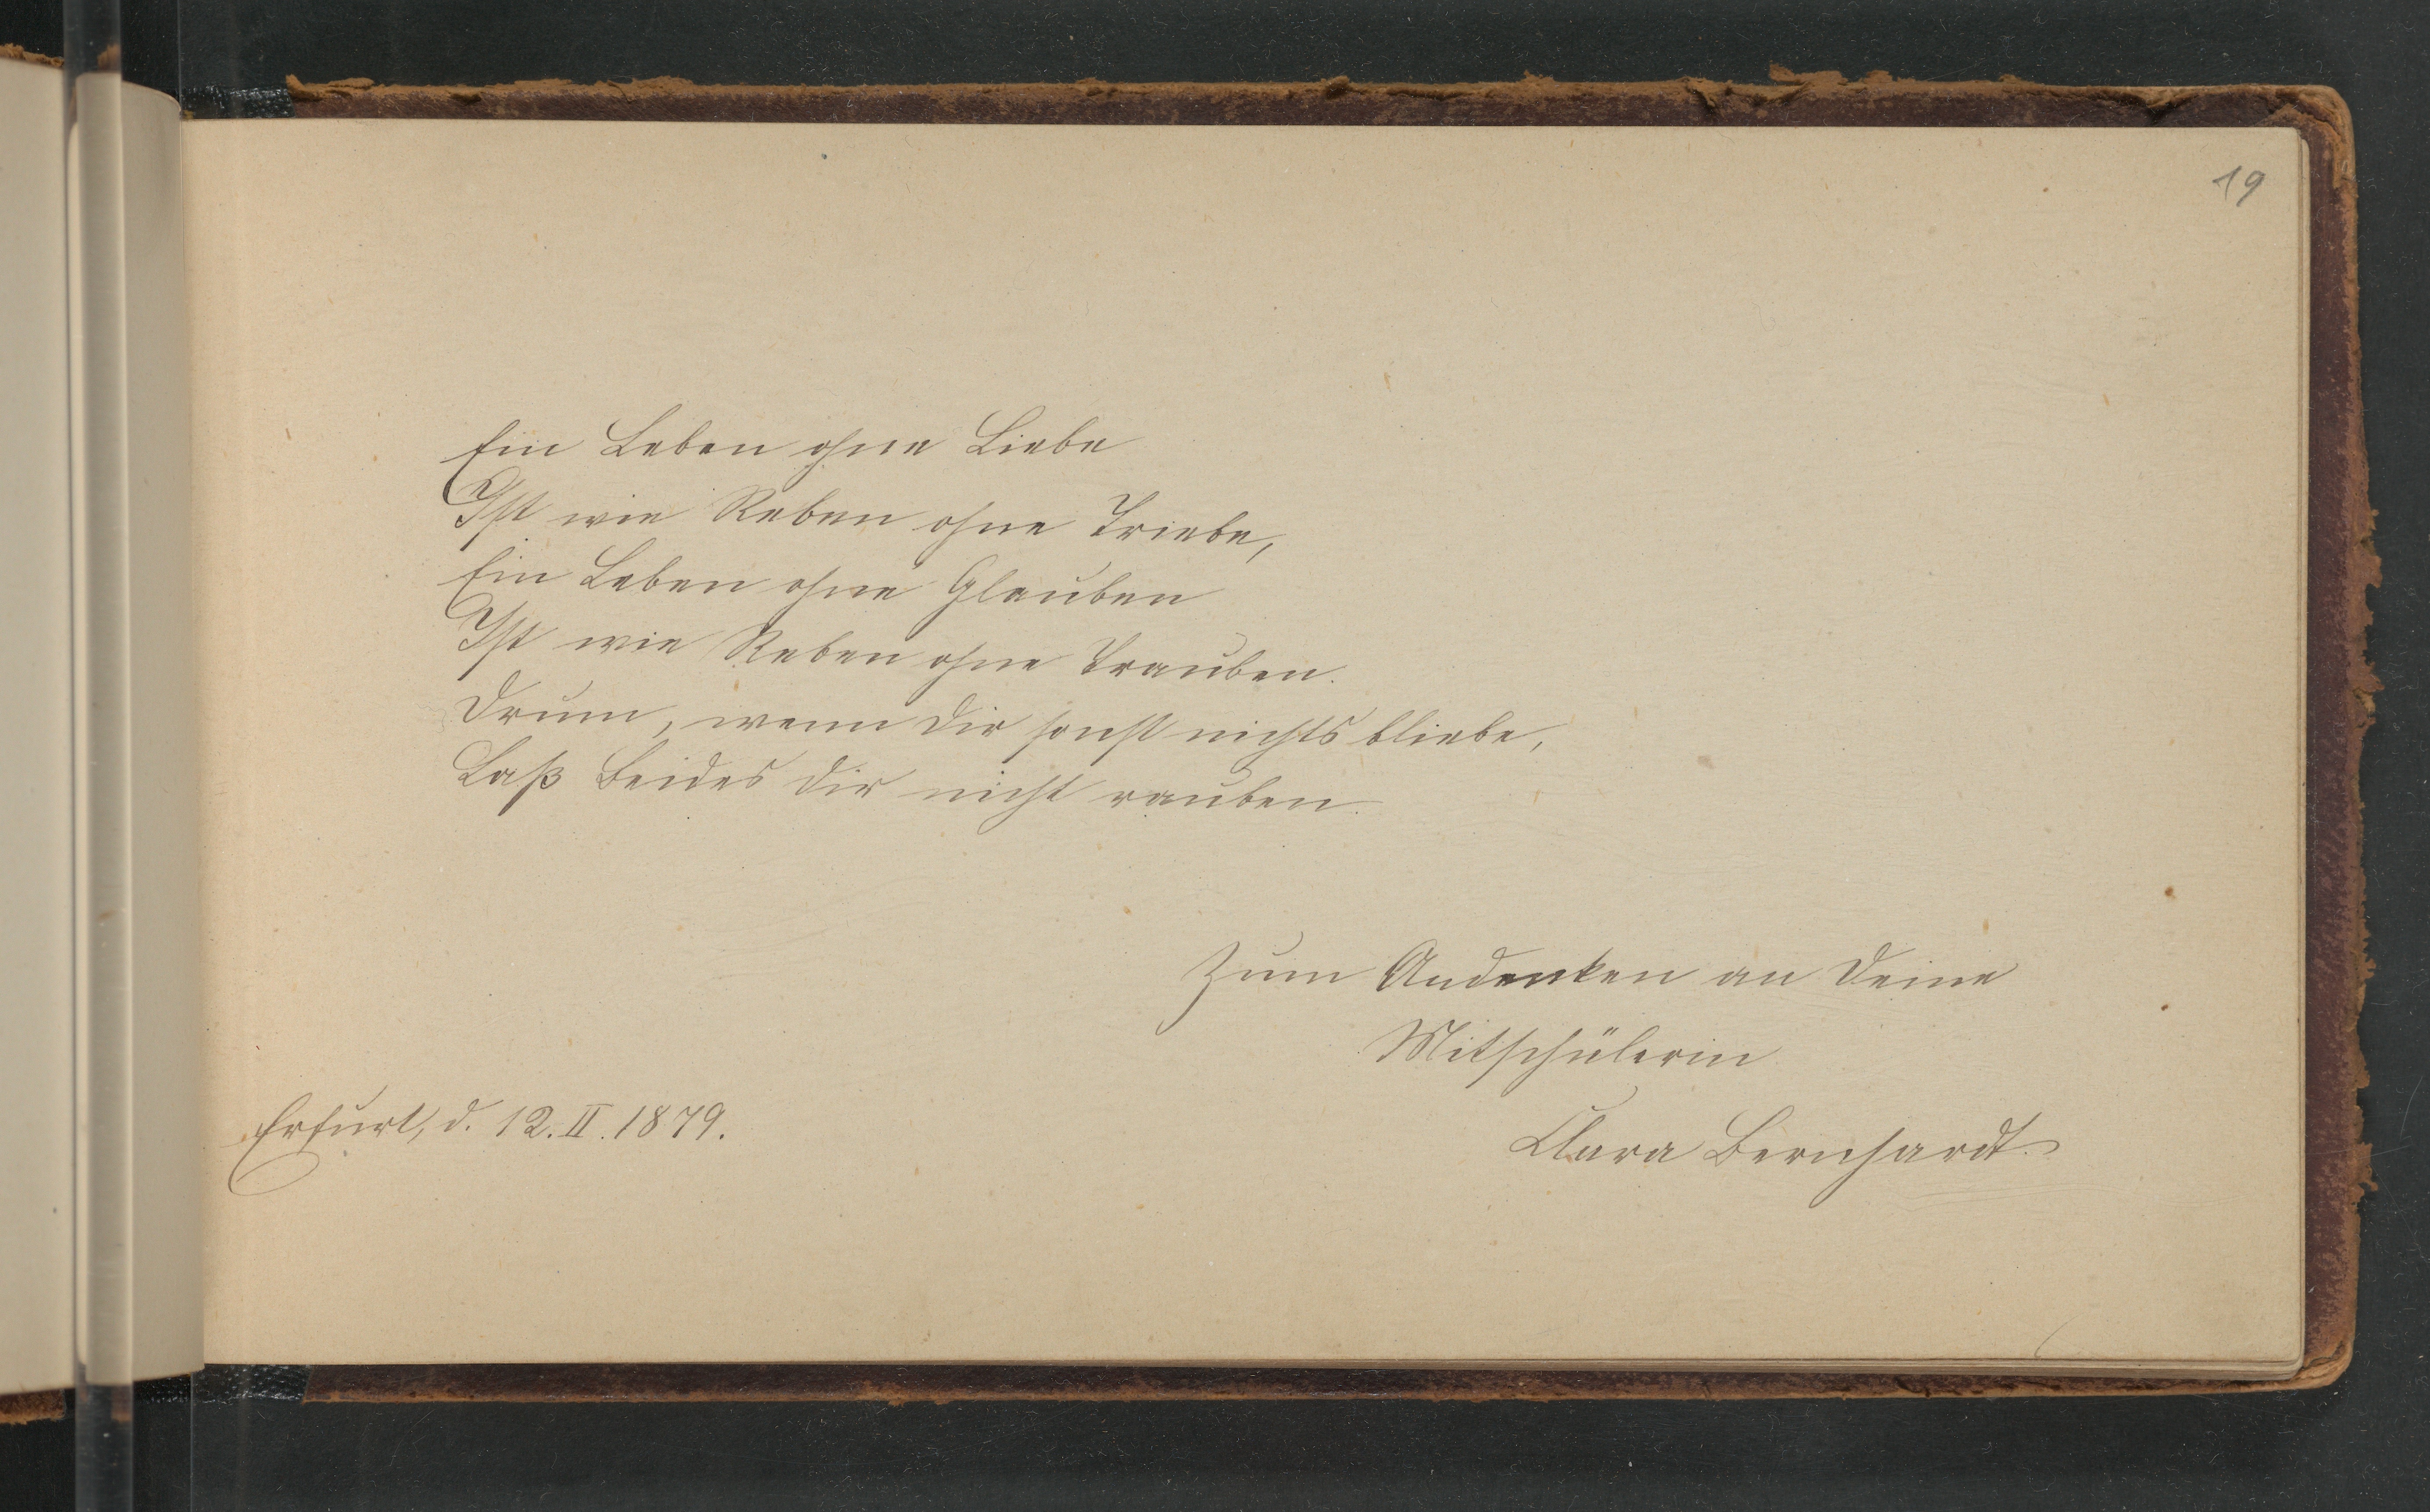 19
Ein Leben ohne Liebe
Ist wie Reben ohne Triebe,
Ein Leben ohne Glauben
Ist wie Reben ohne Trauben.
Drum, wenn dir sonst nichts bliebe,
Laß Beides dir nicht rauben.
Zum Andenken an Deine
Mitschülerin
Erfurt, d. 12. II. 1879.
Clara Bernhardt.